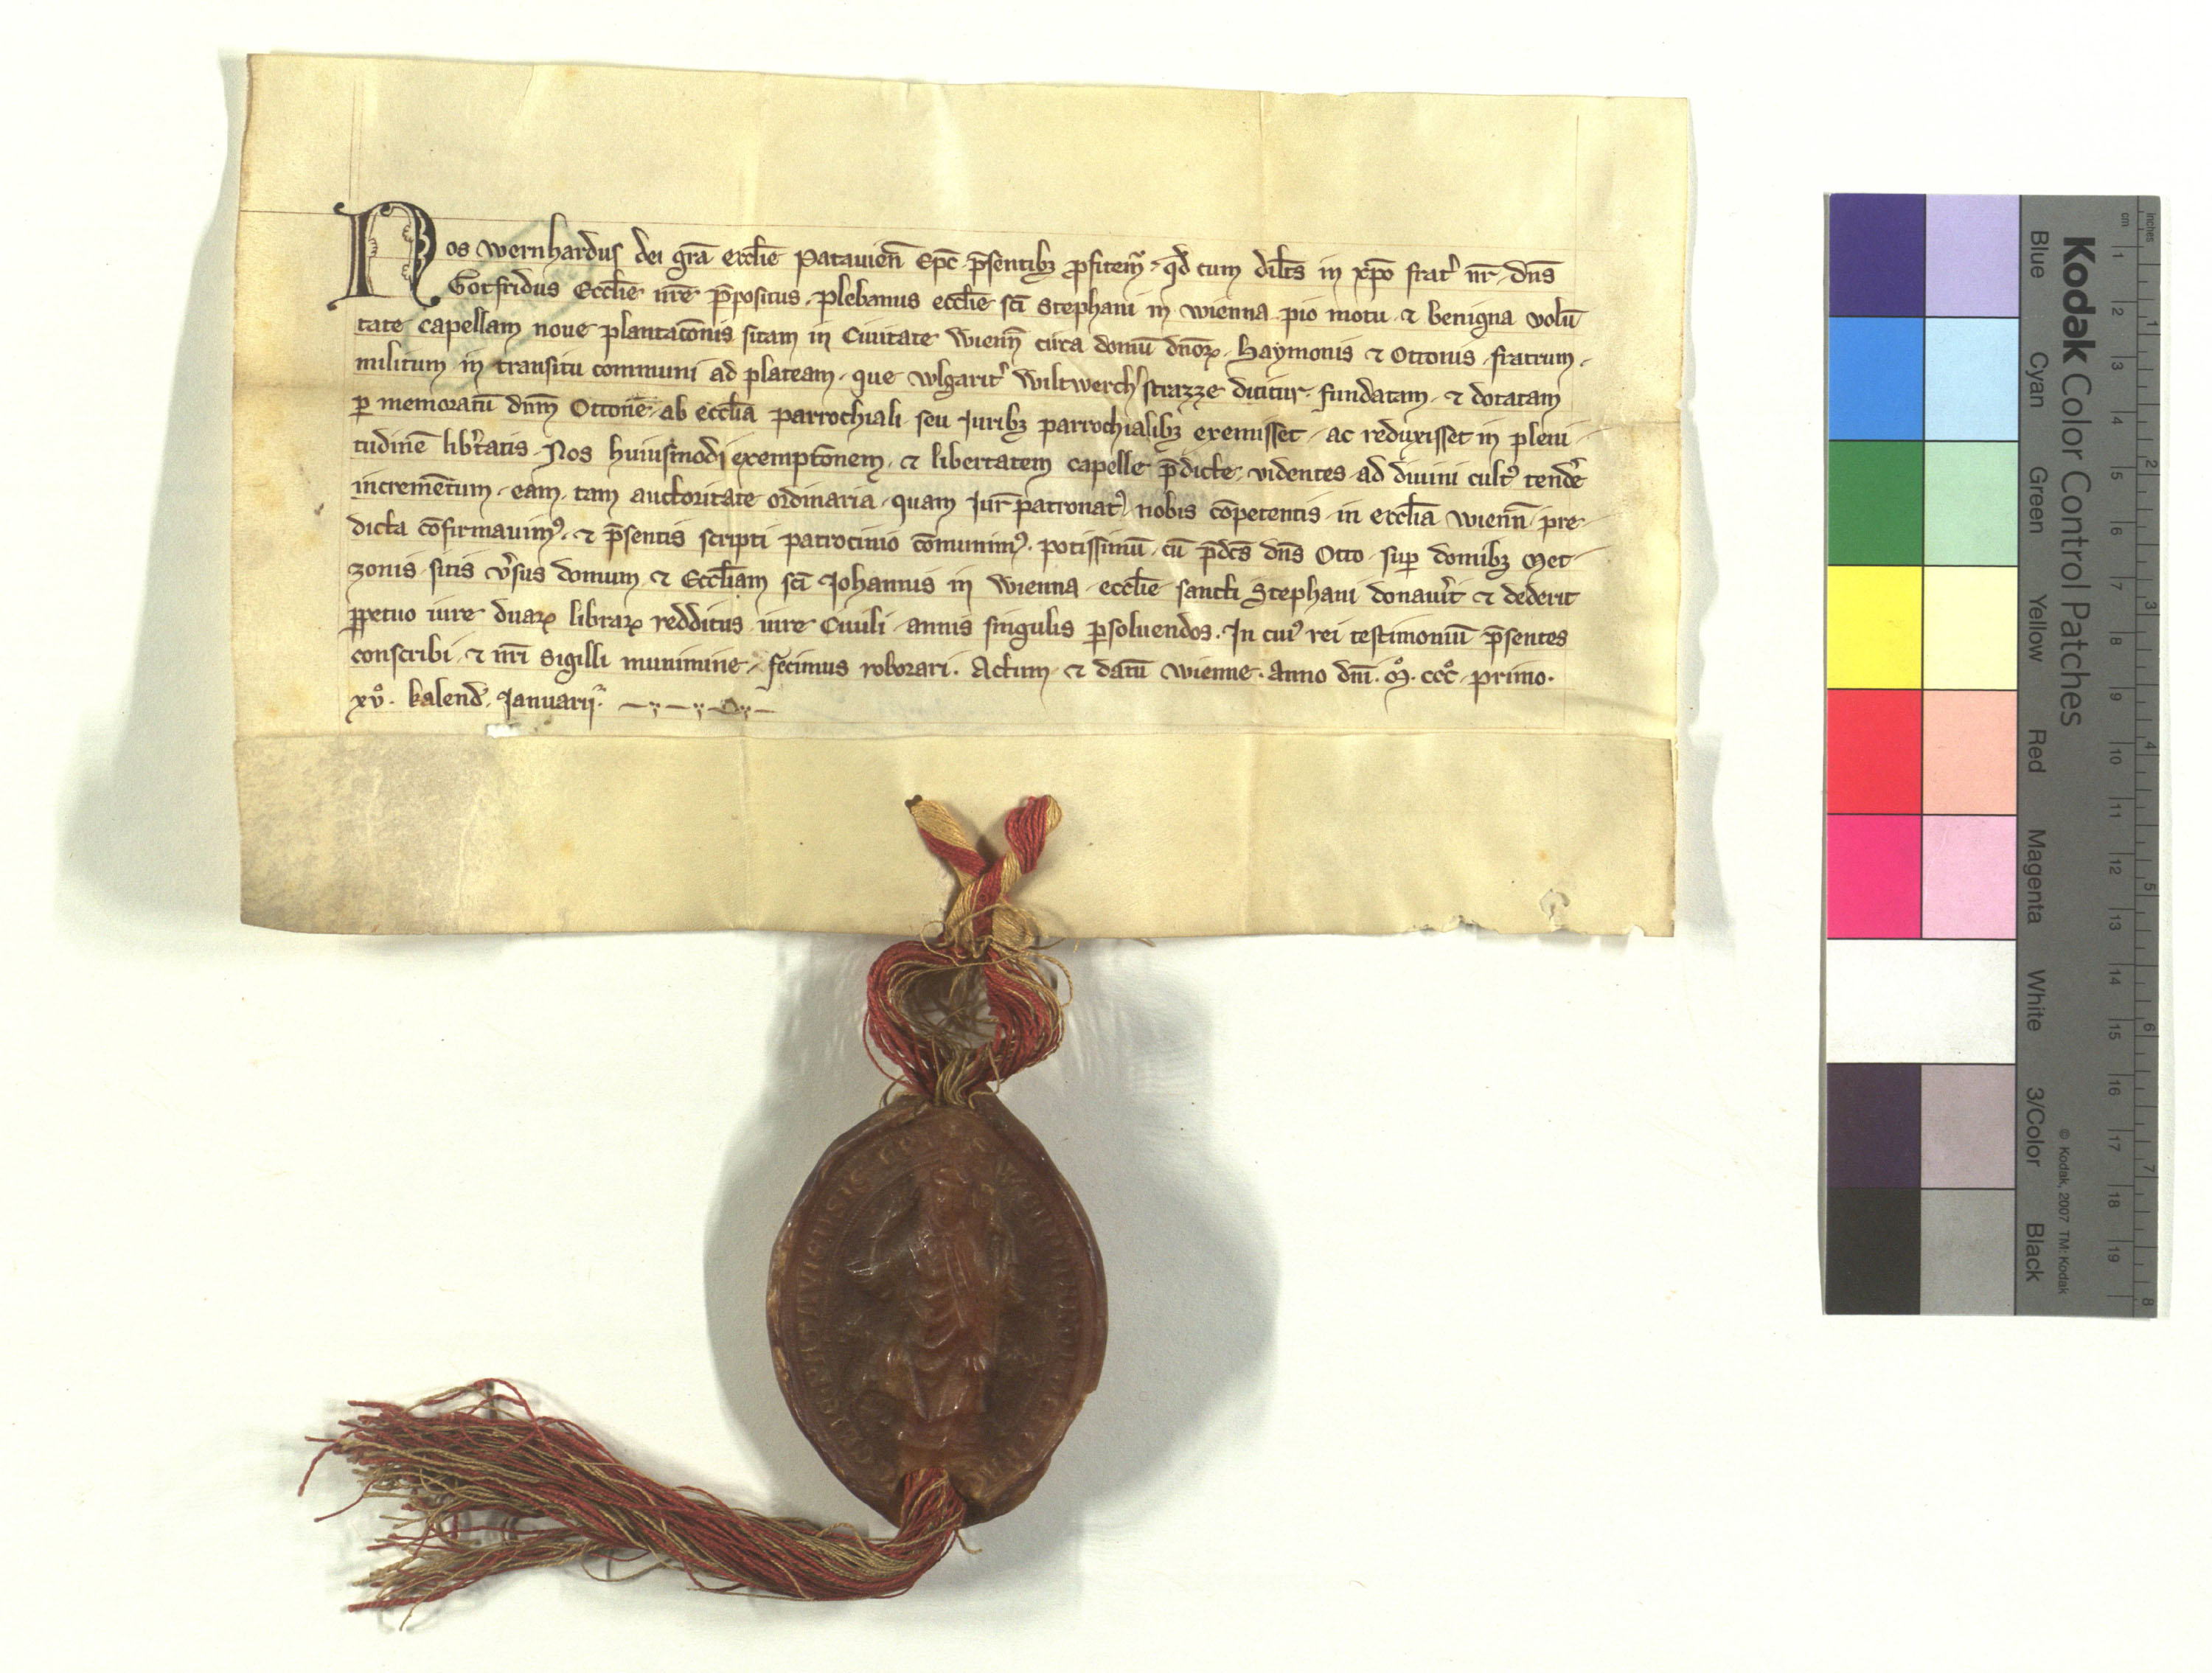 Nos wernhardus dei grā ecclīe Patauieñ Epc̄ p̄sentibꝫ ꝓfitem̃ · qđ cum dilc̄s in xp̄o frat̾ nr̄ dn̄s
Gotfridus Ecclīe nr̄e p̄positus · plebanus ecclīe sc̄i Stephani in wienna pio motu ⁊ benigna volū
tate capellam noue plantatōnis sitam in Ciuitate wienn̄ circa domū dn̄oꝝ · Haymonis ⁊ Ottonis · fratrum ·
militum · in transitu communi ad plateam · que wlgarit̾ wiltwerch̾ strazze dicitur · fundatam · ⁊ dotatam
ꝑ memoratū dn̄m Ottonē · ab ecclīa parrochiali seu Juribꝫ parrochialibꝫ exemisset · ac reduxisset in pleni
tudinē lib̾tatis · Nos huiusmodi exemptōnem · ⁊ libertatem capelle p̄dicte · videntes ad diuini cult⁹ tend̾e
incremētum · eam · tam auctoritate ordinaria · quam Jur̄ patronat⁹ nobis cōpetentis in ecclīa wienn̄ pre
dicta cōfirmauim⁹ · ⁊ p̄sentis scripti patrocinio cōmunim⁹ · potissimū · cū p̄dc̄s dn̄s Otto · suꝑ domibꝫ Met
zonis · sitis v̾sus domum · ⁊ Eccl̄iam sc̄i Johannis in wienna · ecclīe sancti Stephani donau̾it ⁊ dederit
ꝑpetuo iure duaꝝ libraꝝ redditus iure Ciuili annis singulis ꝑsoluendos · In cui⁹ rei testimoniū p̄sentes
conscribi · ⁊ nr̄i sigilli munimine · fecimus roborari · Actum · ⁊ datū wienne · anno dn̄i · mͦ · cccͦ · primo ·
xvͦ · kalend̾ · Januarij ·
WERNHARDVS
PATAVIENSIS
Kodak Color Control Patches
Blue Cyan Green Yellow Red Magenta White 3/Color Black
© Kodak, 2007 TM: Kodak
cm 1 2 3 4 5 6 7 8 9 10 11 12 13 14 15 16 17 18 19
inches 1 2 3 4 5 6 7 8